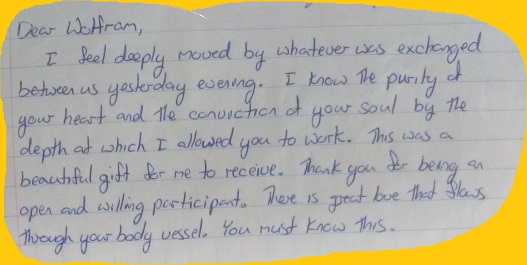 Dear Wolfram,
I feel deeply moved by whatever was exchanged
between us yesterday evening. I know the purity of
your heart and the conviction of your soul by the
depth at which I allowed you to work. This was a
beautiful gift for me to receive. Thank you for being an
open and willing participant. There is great love that flows
through your body vessel. You must know this.